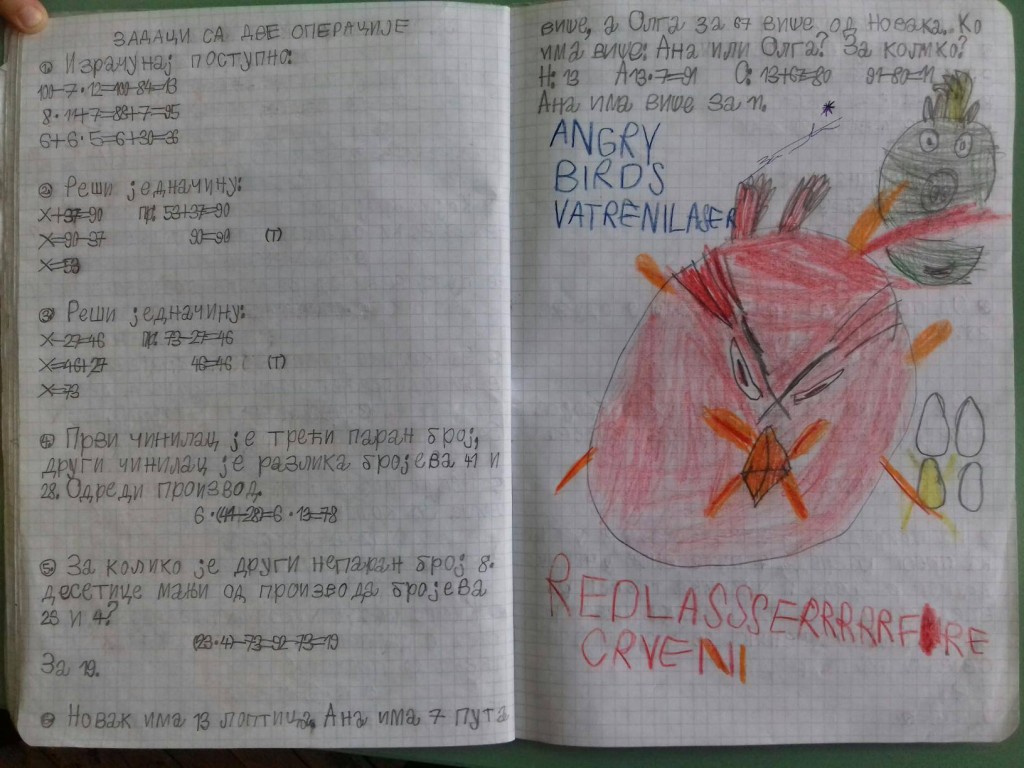 ЗАДАЦИ СА ДВЕ ОПЕРАЦИЈЕ
① Израчунај поступно:
100-7·12=100-84=13
8·11+7=88+7=95
6+6·5=6+30=36
② Реши једначину:
X+37=90 ПР: 53+37=90
X=90-37 90=90 (Т)
X=53
③ Реши једначину:
X-27=46 ПР: 73-27=46
X=46+27 46=46 (Т)
X=73
④ Први чинилац је трећи паран број,
други чинилац је разлика бројева 41 и
28. Одреди производ.
6·(41-28)=6·13=78
⑤ За колико је други непаран број 8.
десетице мањи од производа бројева
23 и 4?
(23·4)-73=92-73=19
За 19.
Новак има 13 лоптица, Ана има 7 пута
више, а Олга за 67 више од Новака. Ко
има више: Ана или Олга? За колико?
Н: 13 А: 13·7=91 О: 13+67=80 91-80=11
Ана има више за 11.
ANGRY
BIRDS
VATRENILASER
REDLASSSERRRRRFIRE
CRVENI